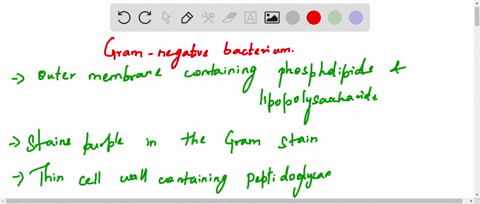 Gram-negative bacterium.
-> Outer membrane containing phospholipids &
lipopolysaccharide
-> Stains purple in the Gram stain
-> Thin cell wall containing peptidoglycan